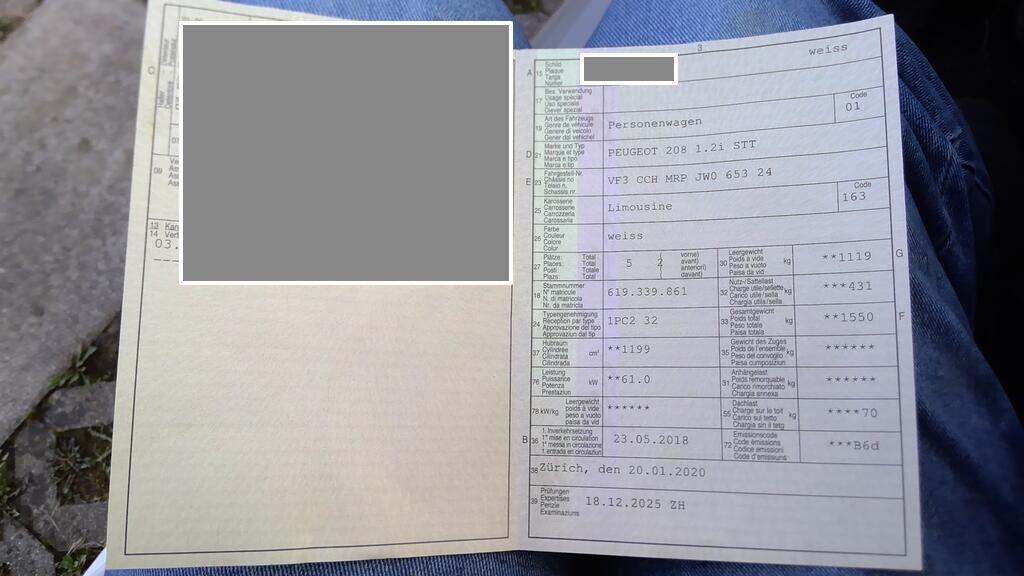 C
09
13
14
03.
3
weiss
A 15 Schild
Plaque
Targa
Numer
17 Bes. Verwendung
Usage spécial
Uso speciale
Diever spezial
19 Art des Fahrzeugs
Genre de véhicule
Genere di veicolo
Gener dal vehichel
Personenwagen
Code
01
D 21 Marke und Typ
Marque et type
Marca e tipo
Marca e tip
PEUGEOT 208 1.2i STT
E 23 Fahrgestell-Nr.
Châssis no
Telaio n.
Schassis nr.
VF3 CCH MRP JW0 653 24
25 Karosserie
Carrosserie
Carrozzeria
Carossaria
Limousine
Code
163
26 Farbe
Couleur
Colore
Colur
weiss
27 Plätze: Total
Places: Total
Posti: Totale
Plazs: Total
5 2 ( vorne)
( avant)
( anteriori)
( davant)
30 Leergewicht
Poids à vide
Peso a vuoto
Paisa da vid
kg
**1119
G
18 Stammnummer
N° matricule
N. di matricola
Nr. da matricla
619.339.861
32 Nutz-/Sattellast
Charge utile/sellette
Carico utile/sella
Chargia utila/sella
kg
***431
24 Typengenehmigung
Réception par type
Approvazione del tipo
Approvaziun dal tip
1PC2 32
33 Gesamtgewicht
Poids total
Peso totale
Paisa totala
kg
**1550
F
37 Hubraum
Cylindrée
Cilindrata
Cilindrada
cm³
**1199
35 Gewicht des Zuges
Poids de l'ensemble
Peso del convoglio
Paisa cumposiziun
kg
******
76 Leistung
Puissance
Potenza
Prestaziun
kW
**61.0
31 Anhängelast
Poids remorquable
Carico rimorchiato
Chargia annexa
kg
******
78 kW/kg Leergewicht
poids à vide
peso a vuoto
paisa da vid
******
55 Dachlast
Charge sur le toit
Carico sul tetto
Chargia sin il tetg
kg
****70
B 36 1. Inverkehrsetzung
1re mise en circulation
1a messa in circolazione
1. entrada en circulaziun
23.05.2018
72 Emissionscode
Code émissions
Codice emissioni
Code d'emissiuns
***B6d
38 Zürich, den 20.01.2020
39 Prüfungen
Expertises
Perizie
Examinaziuns
18.12.2025 ZH